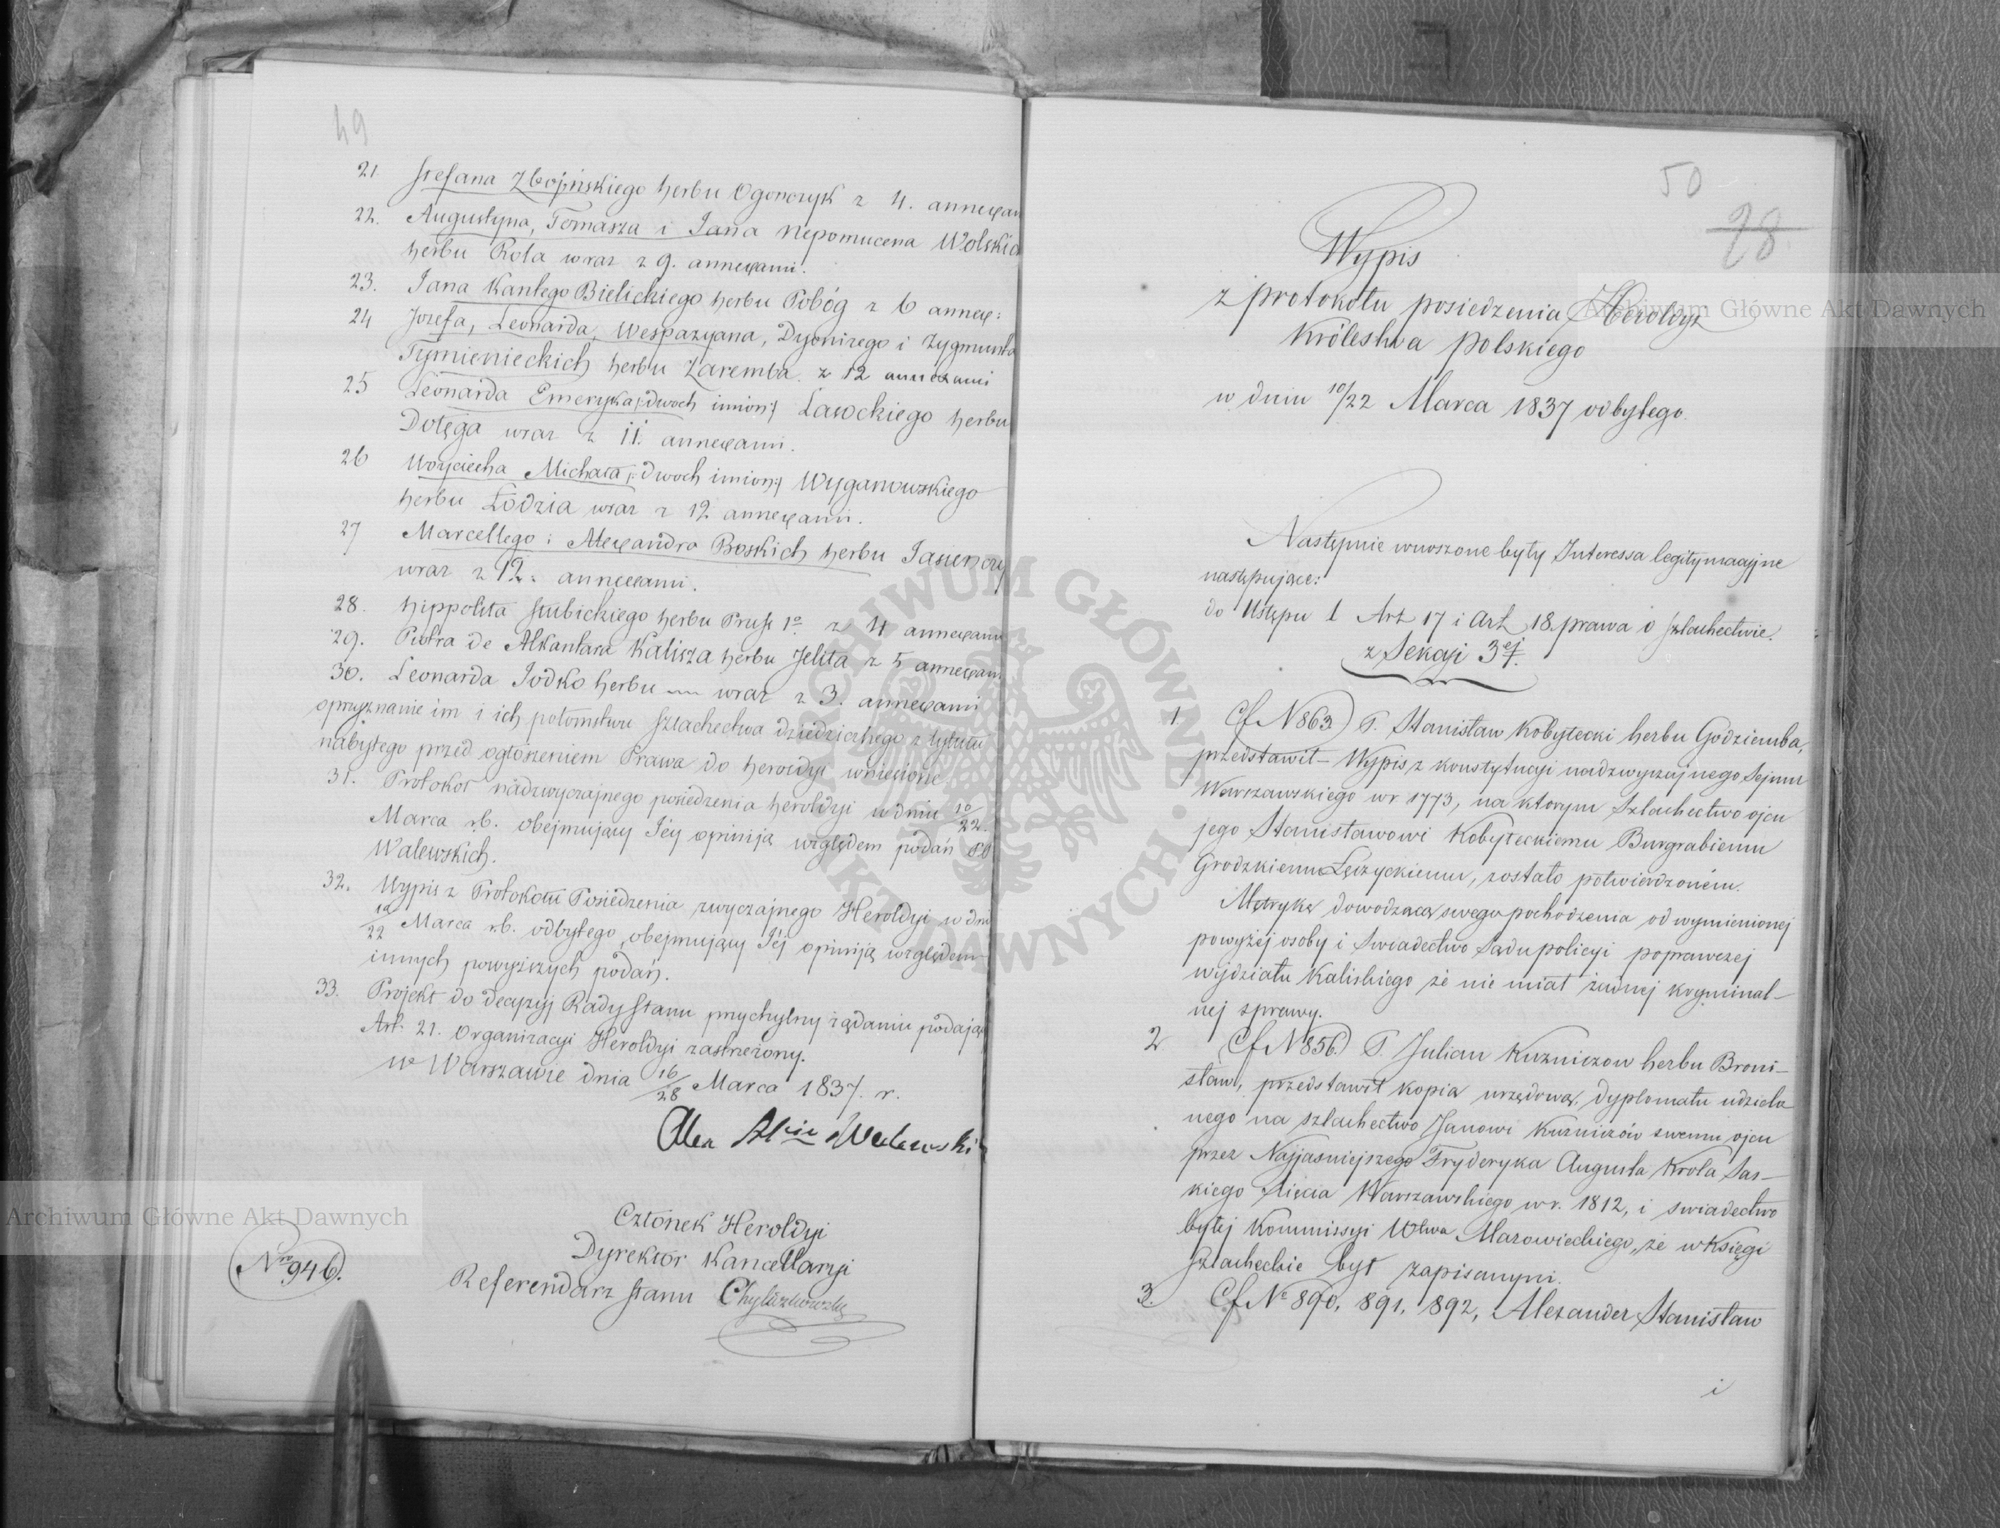 49
21 Stefana Zboińskiego herbu Ogończyk z 4. annexam
22. Augustyna, Tomasza i Jana Nepomucena Wolskich
herbu Rola wraz z 9. annexami.
23. Jana Kantego Bielickiego herbu Pobóg z 6 annex:
24 Jozefa, Leonarda, Wespazyana, Dyonizego i Zygmunta
Tymienieckich herbu Zaremba z 12 annexami
25 Leonarda Emeryka /:dwoch imion:/ Lasockiego herbu
Dołęga wraz z 11. annexami.
26 Woyciecha Michała /:dwoch imion:/ Wyganowskiego
herbu Łodzia wraz z 12 annexami.
27 Marcellego i Alexandra Boskich herbu Jasieńczy
wraz z 12. annexami.
28. Hippolita Słubickiego herbu Pruss 1o z 4 annexami
29. Piotra de Alkantara Kalisza herbu Jelita z 5 annexam
30. Leonarda Jodko herbu — wraz z 3. annexami
o przyznanie im i ich potomstwu szlachectwa dziedzicznego z tytułu
nabytego przed ogłoszeniem Prawa do heroldyi wniesione
31. Protokół nadzwyczajnego posiedzenia heroldyi w dniu 10/22
Marca r.b. obejmujący Jéy opiniją względem podań PP
Walewskich.
32. Wypis z Protokółu Posiedzenia zwyczajnego Heroldyi w dniu
10/22 Marca r.b. odbytego, obejmujący Jéj opiniją względem
innych powyższych podań.
33. Projekt do decyzyj Rady Stanu przychylny żądaniu podając
Art: 21. Organizacyi Heroldyi zastrzeżony.
w Warszawie dnia 16/28 Marca 1837. r.
Alex Walewski
Członek Heroldyi
Dyrektor Kancellaryi
Referendarz Stanu Chyliczkowski
Nro 946.
50
28
Wypis
z protokołu posiedzenia Heroldyi
Królestwa polskiego
w dniu 10/22 Marca 1837 odbytego.
Następnie wnoszone były Interessa legitymacyjne
następujące:
do Ustępu 1 Art 17 i Art 18 prawa o szlachectwie.
z Sekcyi 3ej.
1 Cf N 863) P. Stanisław Kobyłecki herbu Godziemba,
przedstawił – Wypis z konstytucyi nadzwyczajnego Sejmu
Warszawskiego w r 1773, na ktorym Szlachectwo ojcu
jego Stanisławowi Kobyłeckiemu Burgrabiemu
Grodzkiemu Łęczyckiemu, zostało potwierdzoném.
Metrykę dowodzącą swego pochodzenia od wymienionej
powyżéj osoby i Swiadectwo Sądu policyi poprawczej
wydziału Kaliskiego że nie miał żadnej kryminal–
nej sprawy.
2 Cf N 856) P. Julian Kuzniczow herbu Broni–
sław, przedstawił kopią urzędową, dyplomatu udzielo
nego na szlachectwo Janowi Kuzniczów swemu ojcu
przez Najjasniejszego Fryderyka Augusta Krola Sas–
kiego Xięcia Warszawskiego w r. 1812, i swiadectwo
byłej Kommissyi Wtwa Mazowieckiego, że w Księgi
szlacheckie był zapisanym.
3. Cf No 890, 891, 892, Alexander Stanisław
i
Archiwum Główne Akt Dawnych
Archiwum Główne Akt Dawnych
ARCHIWUM GŁÓWNE AKT DAWNYCH